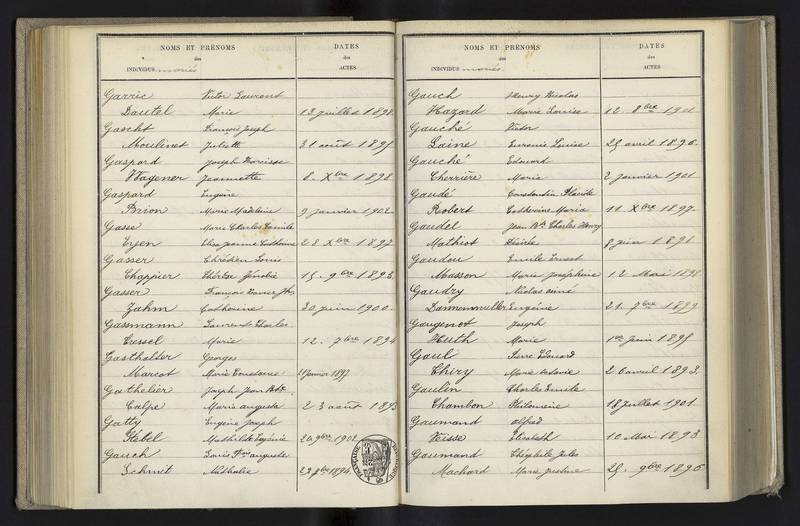 NOMS ET PRÉNOMS DATES
des des
INDIVIDUS mariés ACTES
Garric Victor Laurent
Dautel Marie 13 juillet 1898
Gascht François Joseph
Moulinet Juliette 31 août 1895
Gaspard Joseph Narcisse
Wagener Jeannette 8. Xbre 1898
Gaspard Eugène
Brion Marie Madeleine 9 janvier 1902
Gasse Marie Charles Camille
Erjen Elise Jeanne 28 Xbre 1892
Gasser Chrétien Louis
Chappier Thérèse 15. 9bre 1893
Gasser François Xavier
Zahm Catherine 30 juin 1900
Gassmann Laurent Charles
Cressel Marie 12. 7bre 1894
Gasthalter Georges
Marcot Marie janvier 1897
Gathelier Joseph Jean Bte
Calpe Marie Augusta 23 août
Gatty Eugène Joseph
Kébel Mathilde Eugénie 26 9bre 1902
Gauch Louis auguste
Schmit Nathalie 1894
NOMS ET PRÉNOMS DATES
des des
INDIVIDUS mariés ACTES
Gauch Henry Nicolas
Hazard Marie Louise 12. 8bre 1901
Gauché Victor
Laine Louise 25 avril 1896
Gauché Edouard
Cherrière Marie 2 janvier 1901
Gaudé Constantin Placide
Robert Catherine Maria 11 Xbre 1897
Gaudel Jean Bte Charles Henry
Mathiot Désirée juin
Gaudou Emile Ernest
Masson Marie Joséphine 12 Mai 1898
Gaudry Nicolas aimé
Dannenmuller Eugénie 21. 9bre 1899
Gaugenot Joseph
Huth Marie 1er juin 1895
Gaul Pierre Edouard
Thiry Marie 26 avril 1893
Gaulin Charles Emile
Chambon Philomène 18 juillet 1901
Gaumand alfred
Veisse Elisabeth 10 Mai 1893
Gaumand Théophile Jules
Machard Marie Justine 25. 9bre 1896